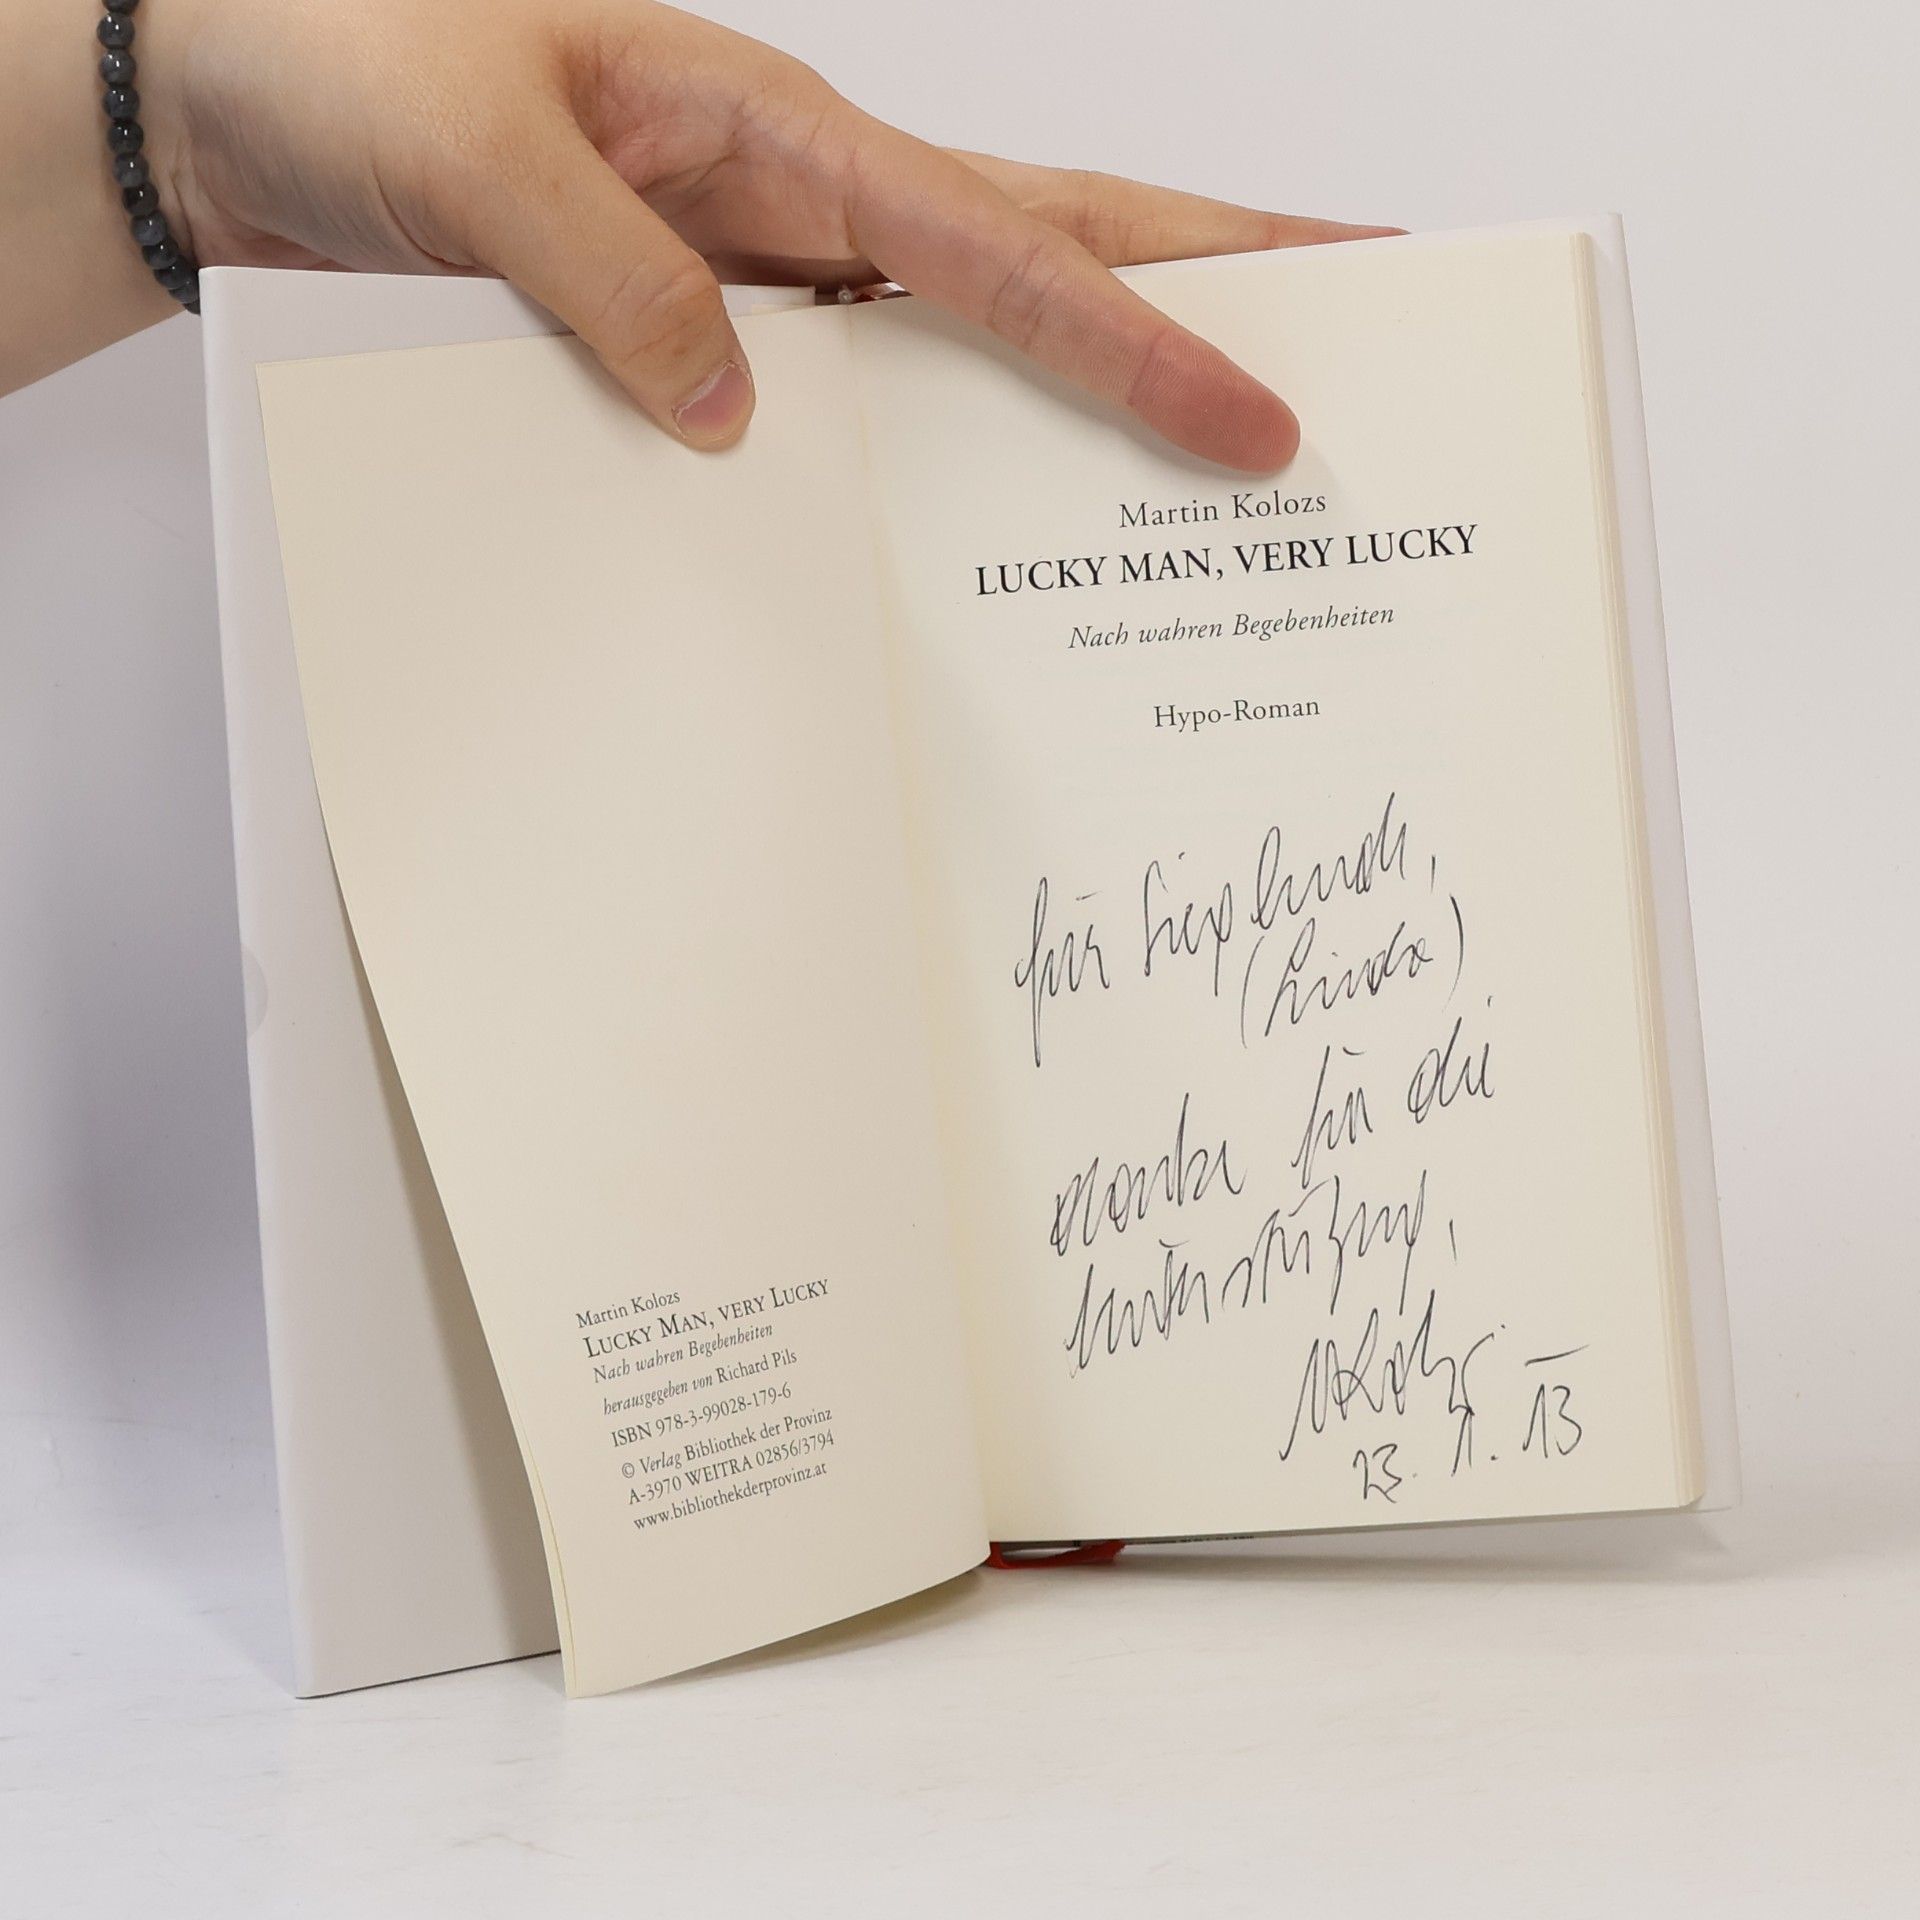 Martin Kolozs
LUCKY MAN, VERY LUCKY
Nach wahren Begebenheiten
herausgegeben von Richard Pils
ISBN 978-3-99028-179-6
© Verlag Bibliothek der Provinz
A-3970 WEITRA 02856/3794
www.bibliothekderprovinz.at
Martin Kolozs
LUCKY MAN, VERY LUCKY
Nach wahren Begebenheiten
Hypo-Roman
für Sieglinde,
(Linda)
danke für die
Unterstützung,
MKolozs
23. 1. 13